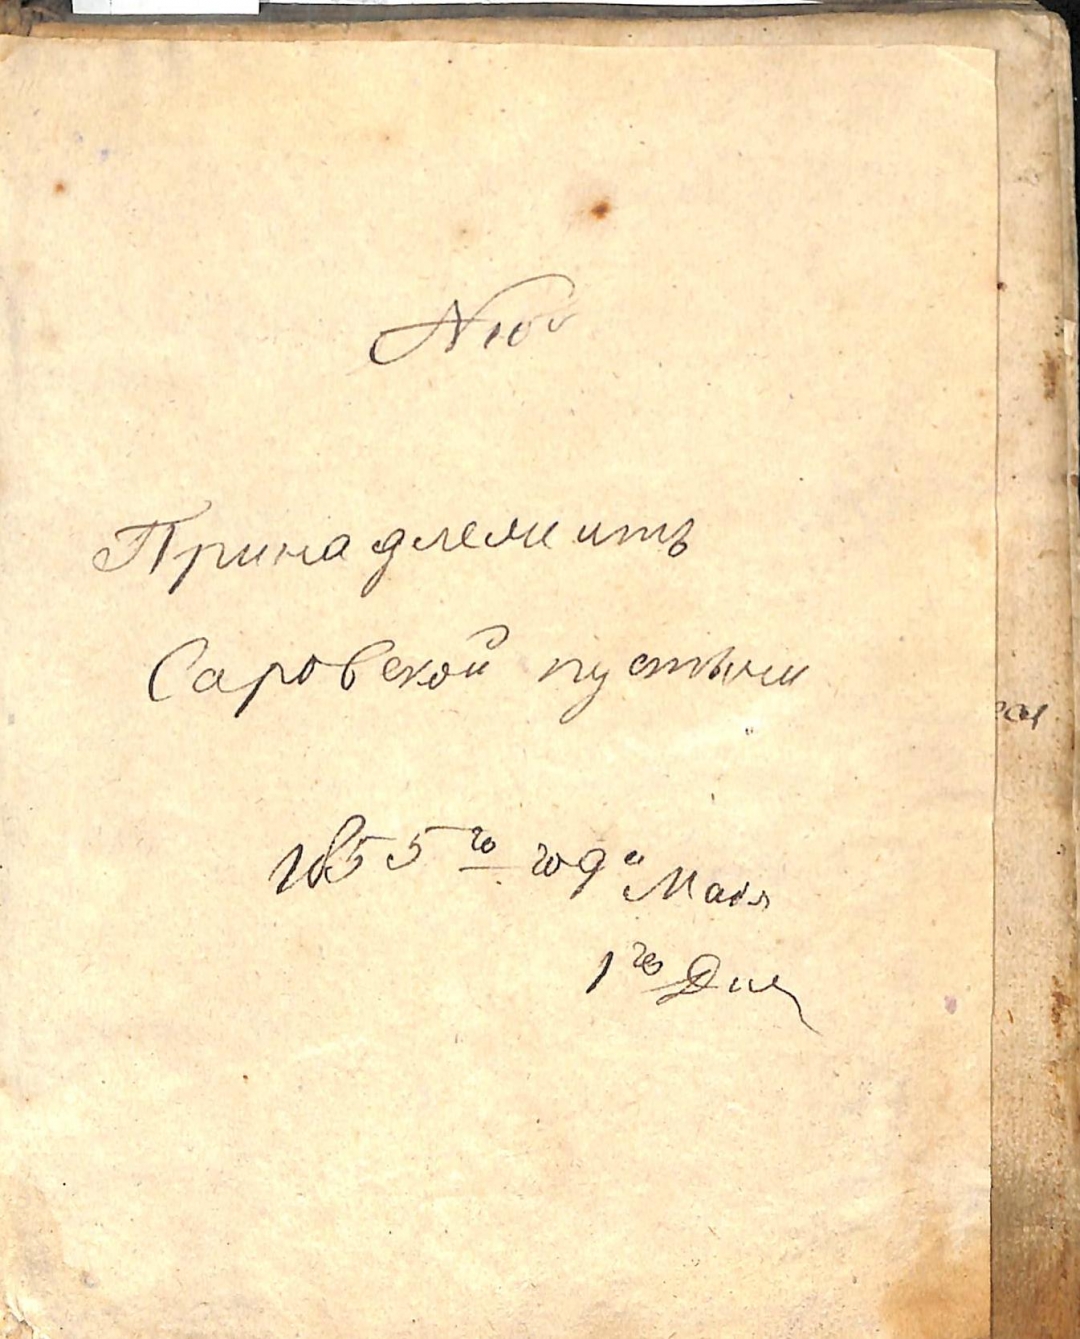 N 10й
Принадлежитъ
Саровской пустыни
1855го года Маія
1го Дня